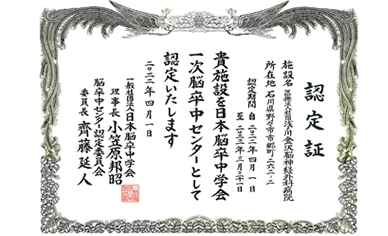 認定証
施設名 医療法人社団浅ノ川 金沢脳神経外科病院
所在地 石川県野々市市郷町二六二-二
認定期間 自 二〇二三年四月一日
至 二〇二三年三月三十一日
貴施設を日本脳卒中学会
一次脳卒中センターとして
認定いたします
二〇二三年四月一日
一般社団法人日本脳卒中学会
理事長 小笠原邦昭
脳卒中センター認定委員会
委員長 齊藤延人